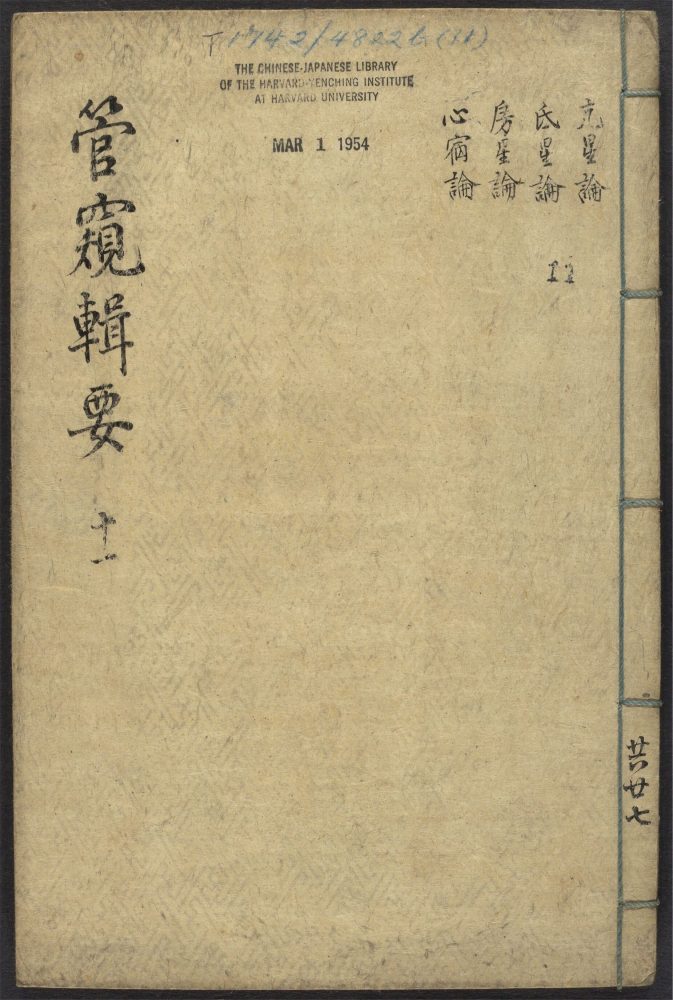 T 1742/4822b (11)
THE CHINESE-JAPANESE LIBRARY
OF THE HARVARD-YENCHING INSTITUTE
AT HARVARD UNIVERSITY
MAR 1 1954
亢星論
氐星論
房星論
心宿論
11
管窺輯要 十一
廿六廿七